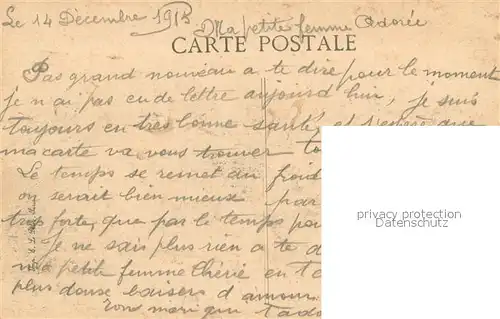 Le 14 Décembre 1915
Ma petite femme Adorée
CARTE POSTALE
Pas grand nouveau a te dire pour le moment
je n ai pas eu de lettre aujourd hui, je suis
toujours en très bonne santé, et j'espère que
ma carte va vous trouver
Le temps se remet du froid
on serait bien mieux par
trop forte, que par le temps
Je ne sais plus rien a te d
ma petite femme Chérie en t
plus douse baisers d amour
ton mari qui t'ado
privacy protection
www.ansichtskarten-center.de